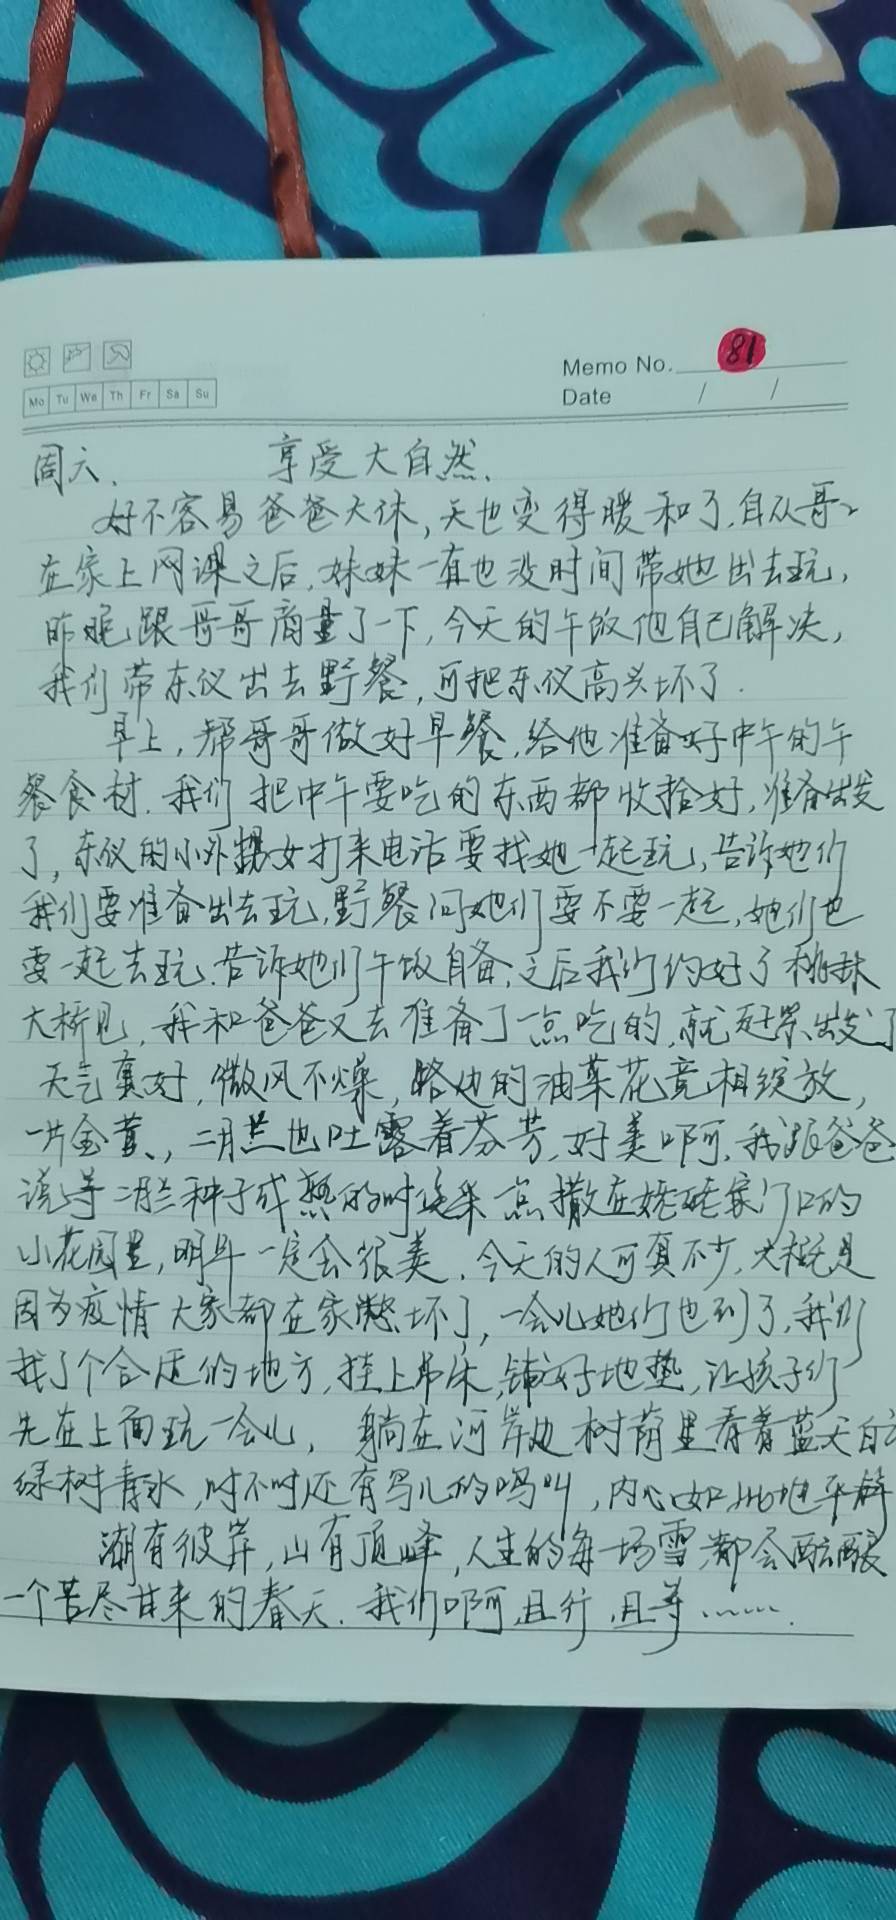 Memo No. 81
Mo Tu We Th Fr Sa Su
Date / /
周六. 享受大自然.
好不容易爸爸大休,天也变得暖和了.自从哥哥
在家上网课之后,妹妹一直也没时间带她出去玩,
昨晚跟哥哥商量了一下,今天的午饭他自己解决,
我们带东仪出去野餐,可把东仪高兴坏了.
早上,帮哥哥做好早餐,给他准备好中午的午
餐食材.我们把中午要吃的东西都收拾好,准备出发
了,东仪的小外甥女打来电话要找她一起玩,告诉她们
我们要准备出去玩,野餐问她们要不要一起,她们也
要一起去玩.告诉她们午饭自备,之后我们约好了桃
大桥见,我和爸爸又去准备了一点吃的,就赶紧出发了
天气真好,微风不燥,路边的油菜花竞相绽放,
一片金黄、,二月兰也吐露着芬芳,好美啊,我跟爸爸
说等二月兰种子成熟的时候采一点撒在姥姥家门口的
小花园里,明年一定会很美.今天的人可真不少,大概是
因为疫情大家都在家憋坏了,一会儿她们也到了,我们
找了个合适的地方,挂上吊床,铺好地垫,让孩子们
先在上面玩一会儿,躺在河岸边树荫里看着蓝天白云
绿树青水,时不时还有鸟儿的鸣叫,内心如此地平静
潮有彼岸,山有顶峰,人生的每一场雪,都会酝酿
一个苦尽甘来的春天.我们啊,且行,且等……